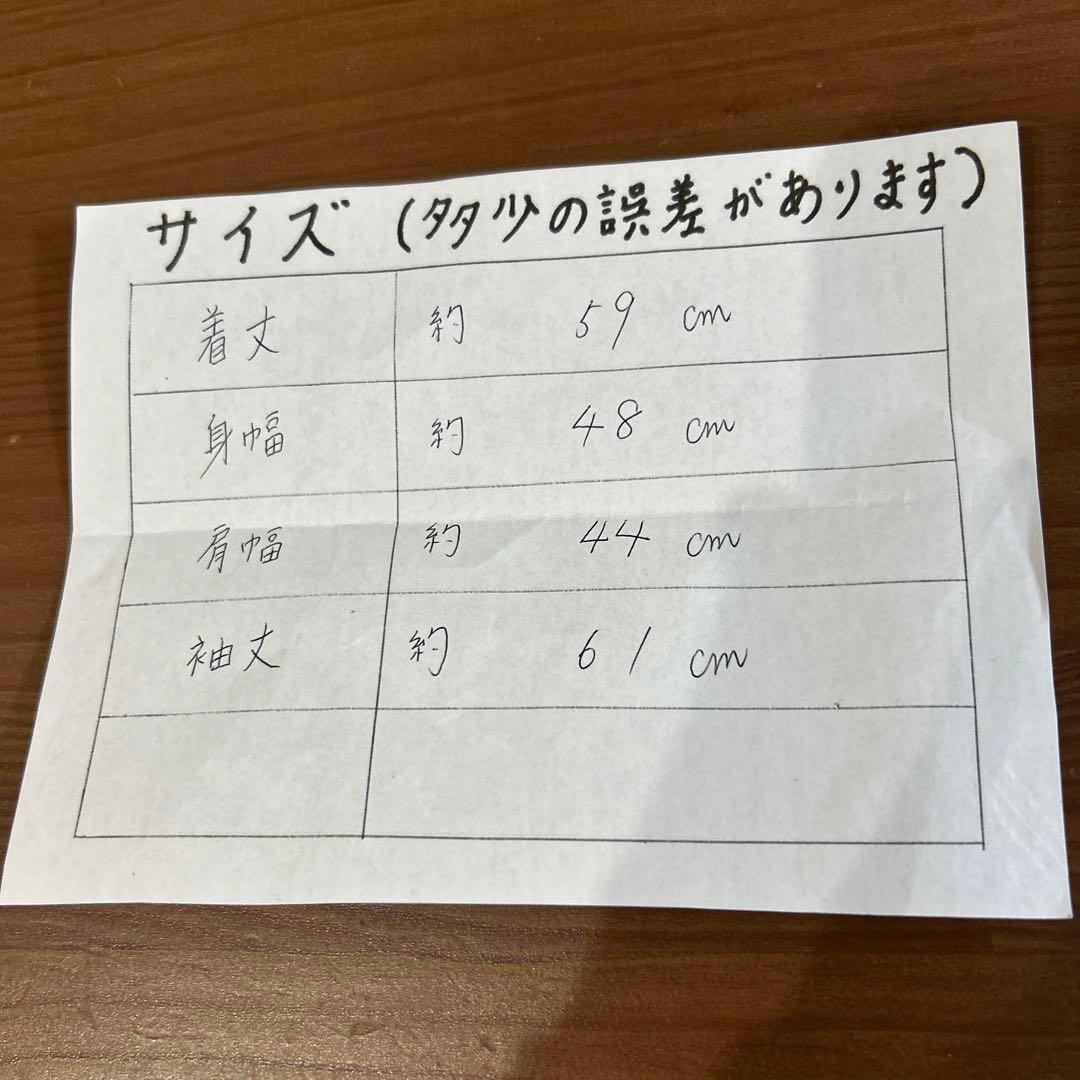 サイズ (多少の誤差があります)
着丈 約 59 cm
身幅 約 48 cm
肩幅 約 44 cm
袖丈 約 61 cm